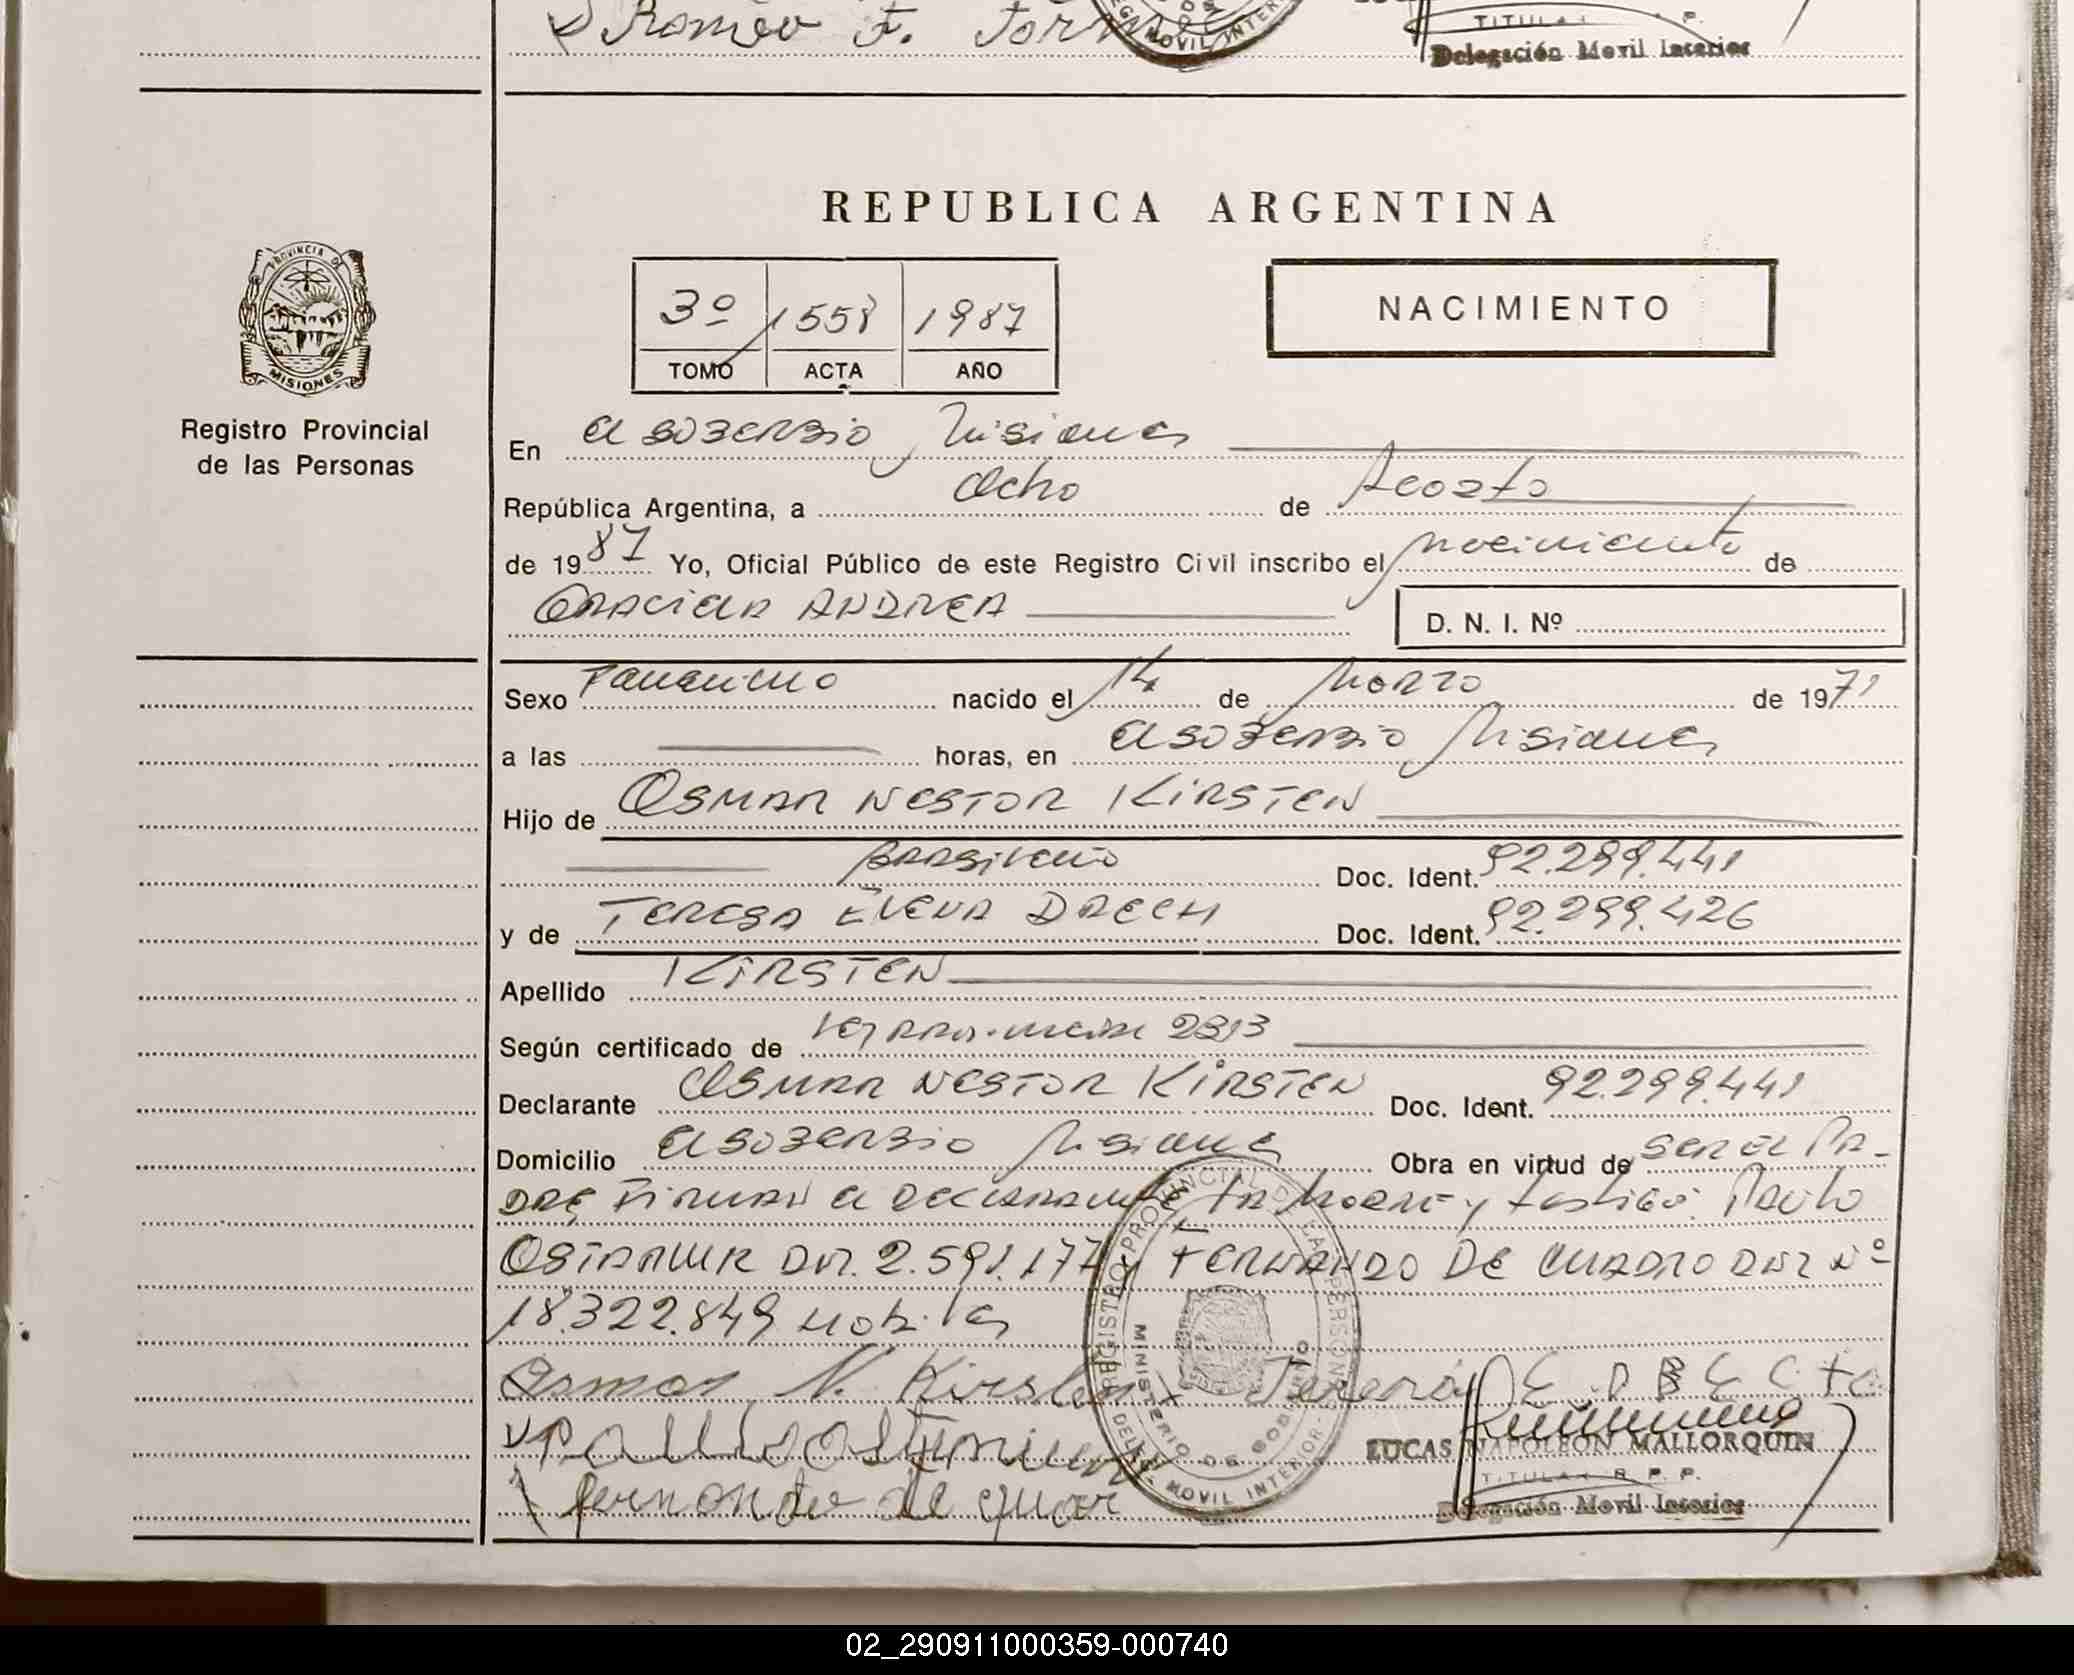 Romeo F. Forn
MOVIL INTER
TITULAR R. P. P.
Delegación Movil Interior
REPUBLICA ARGENTINA
3º 1558 1987
TOMO ACTA AÑO
NACIMIENTO
PROVINCIA DE
MISIONES
Registro Provincial
de las Personas
En el soberbio Misiones
República Argentina, a Ocho de Agosto
de 1987 Yo, Oficial Público de este Registro Civil inscribo el nacimiento de
GRACIELA ANDREA D. N. I. Nº
Sexo Femenino nacido el 14 de Marzo de 1971
a las horas, en el soberbio Misiones
Hijo de OSMAR NESTOR KIRSTEN
Brasileño Doc. Ident. 92.299.441
y de TERESA ELENA DRECH Doc. Ident. 92.299.426
Apellido KIRSTEN
Según certificado de 2313
Declarante OSMAR NESTOR KIRSTEN Doc. Ident. 92.299.441
Domicilio el soberbio Misiones Obra en virtud de ser el Pa-
dre Firman el declarante la Madre y testigo: Paulo
DNI. 2.591.177 y FERNANDO DE CUADRO DNI Nº
18.322.849
Osmar N. Kirsten
LUCAS NAPOLEON MALLORQUIN
TITULAR R. P. P.
fernando de quar
Delegación Movil Interior
REGISTRO PROVINCIAL DE LAS PERSONAS
MINISTERIO DE GOBIERNO
DELEG. MOVIL INTERIOR
02_290911000359-000740